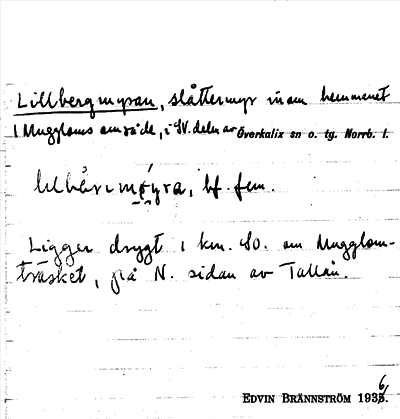 Lillbergmyran, slåttermyr inom hemmanet
1 Muggloms område, i SV. delen av Överkalix sn o. tg. Norrb. l.
bf. fem.
Ligger drygt 1 km. SO. om Mugglom-
träsket, på N. sidan av Tallån.
EDVIN BRÄNNSTRÖM 1936.